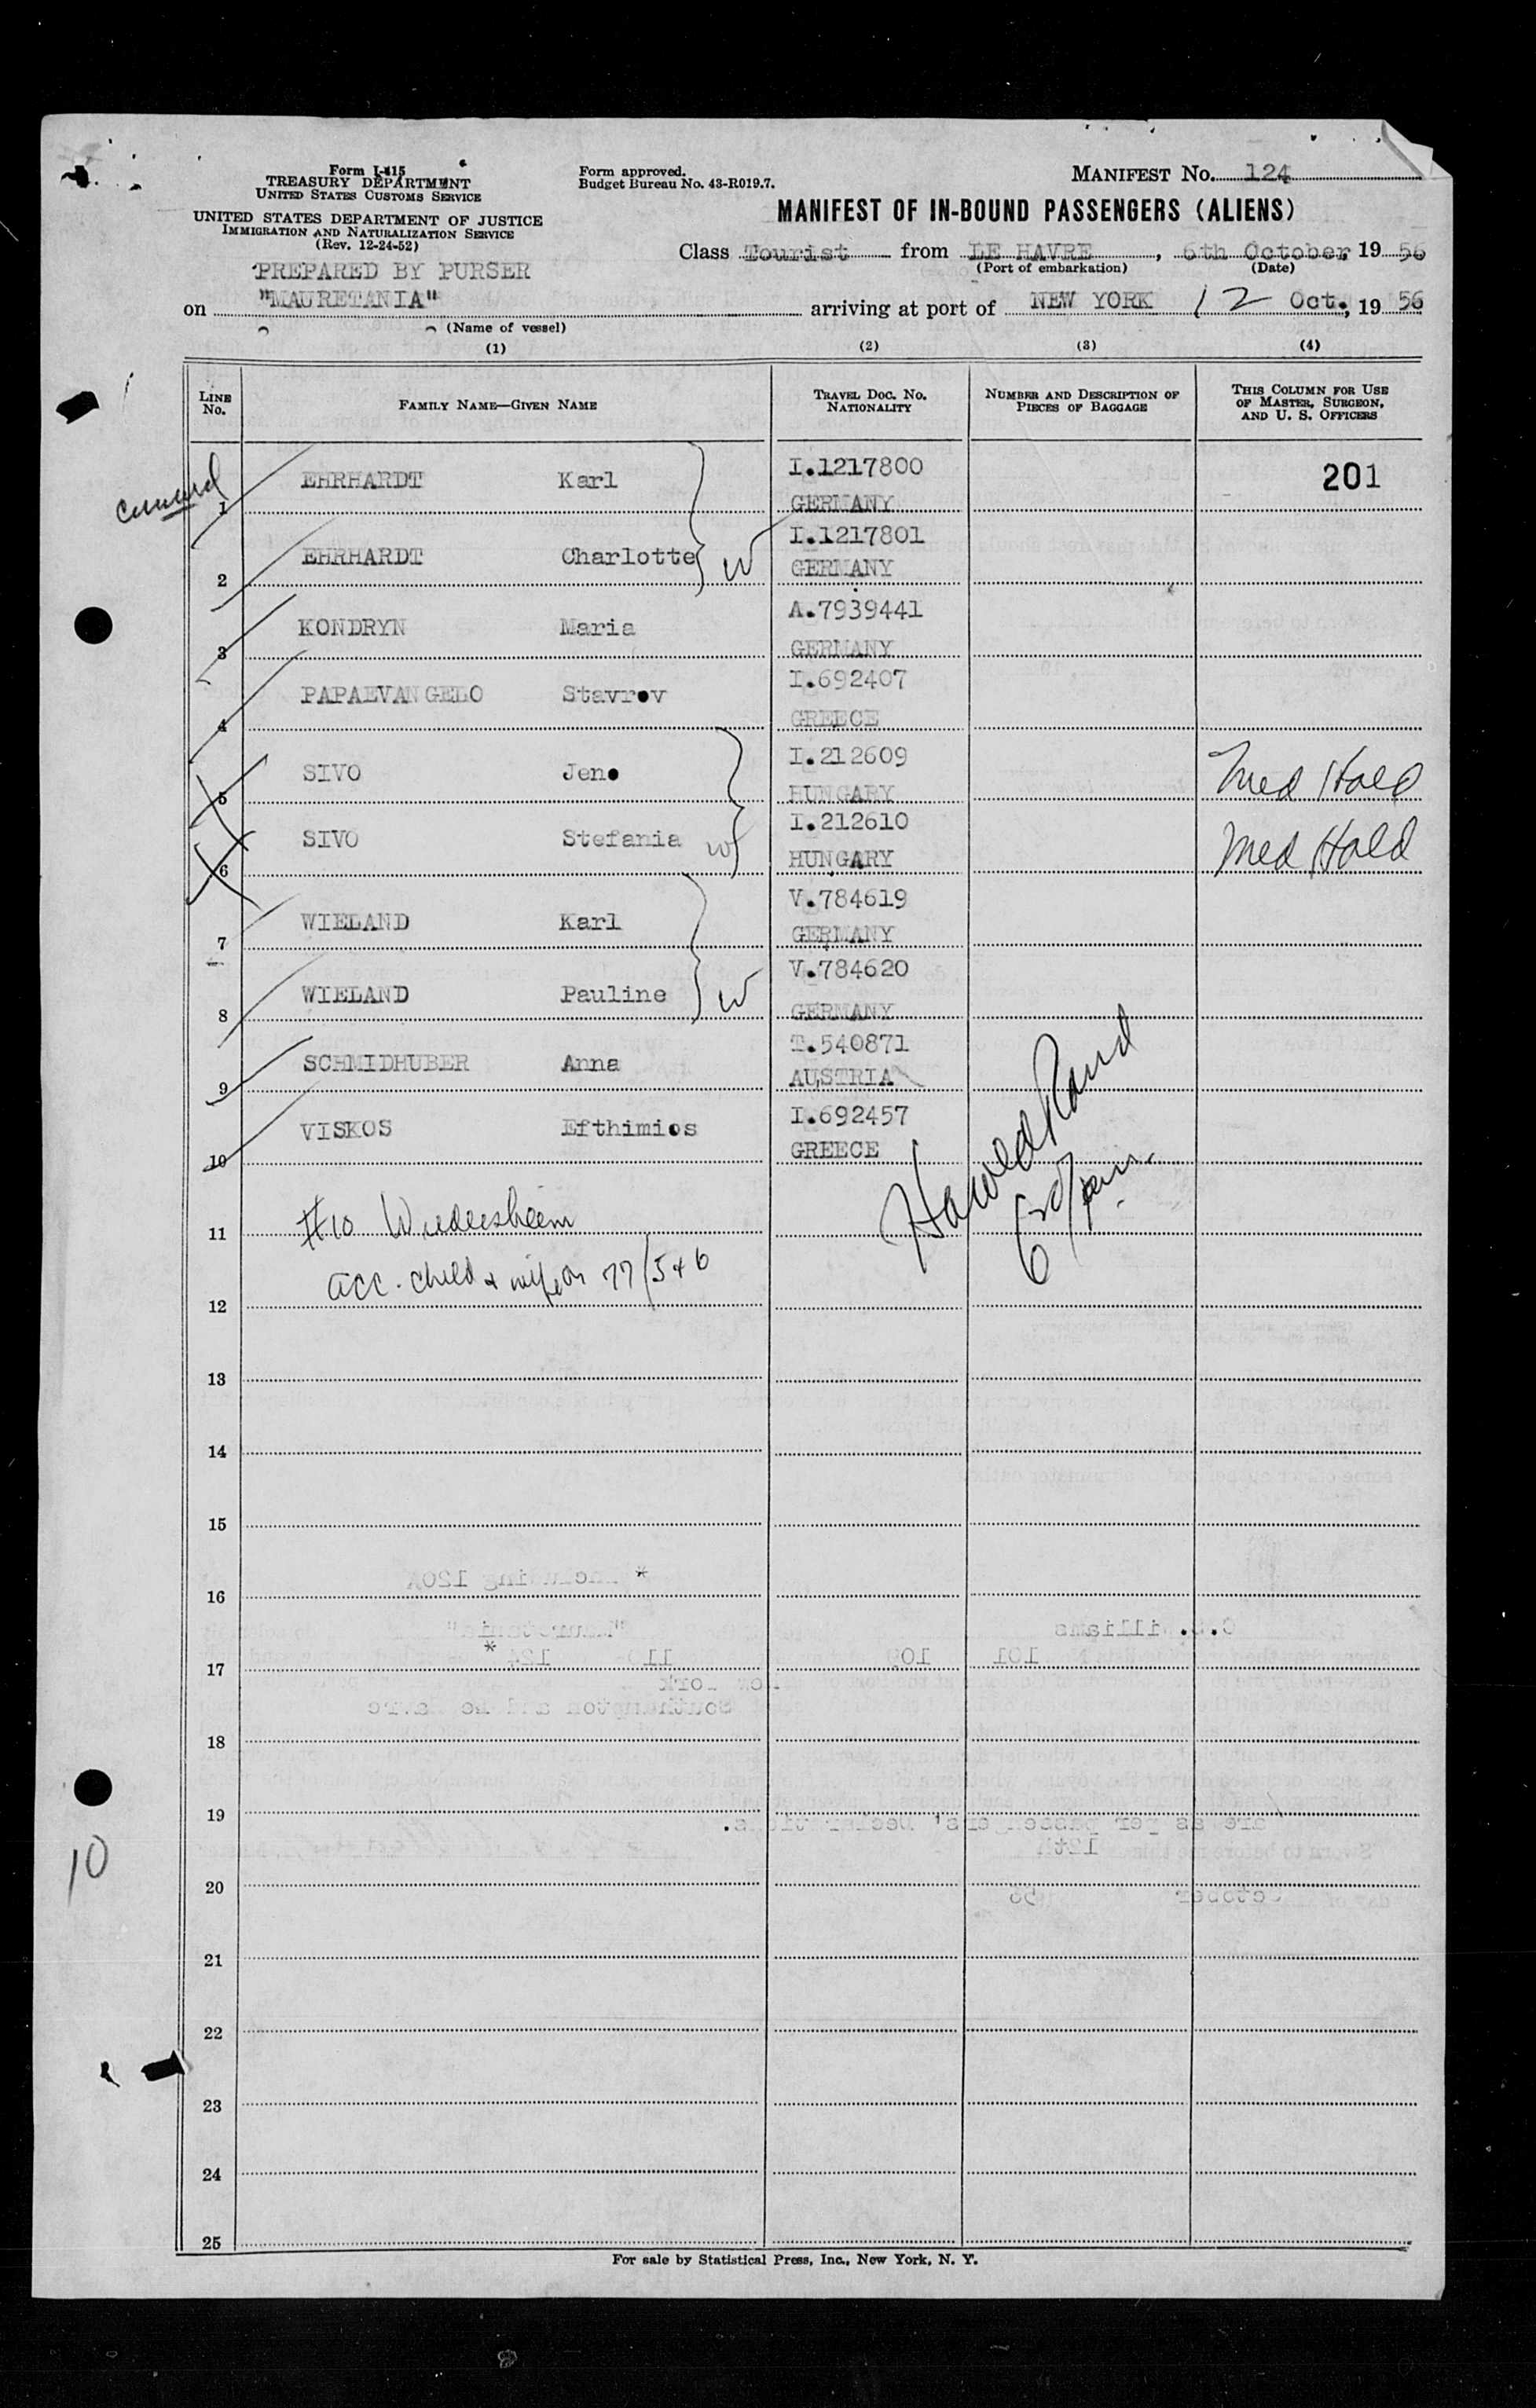 Form I-415
TREASURY DEPARTMENT
UNITED STATES CUSTOMS SERVICE
UNITED STATES DEPARTMENT OF JUSTICE
IMMIGRATION AND NATURALIZATION SERVICE
(Rev. 12-24-52)
Form approved.
Budget Bureau No. 43-R019.7.
MANIFEST No. 124
MANIFEST OF IN-BOUND PASSENGERS (ALIENS)
Class Tourist from LE HAVRE, 6th October, 19 56
(Port of embarkation) (Date)
PREPARED BY PURSER
on "MAURETANIA" arriving at port of NEW YORK 12 Oct., 19 56
(Name of vessel)
(1) (2) (3) (4)
LINE No. FAMILY NAME—GIVEN NAME TRAVEL DOC. NO. NATIONALITY NUMBER AND DESCRIPTION OF PIECES OF BAGGAGE THIS COLUMN FOR USE OF MASTER, SURGEON, AND U. S. OFFICERS
1 EHRHARDT Karl I.1217800 GERMANY 201
2 EHRHARDT Charlotte W I.1217801 GERMANY
3 KONDRYN Maria A.7939441 GERMANY
4 PAPAEVANGELO Stavrov I.692407 GREECE
5 SIVO Jeno I.212609 HUNGARY Med Hold
6 SIVO Stefania W I.212610 HUNGARY Med Hold
7 WIELAND Karl V.784619 GERMANY
8 WIELAND Pauline W V.784620 GERMANY
9 SCHMIDHUBER Anna T.540871 AUSTRIA
10 VISKOS Efthimios I.692457 GREECE
11 #10
12 acc. child & wife on 77/5 & 6
Harold Rand
13
14
15
16
17
18
19
10
20
21
22
23
24
25
For sale by Statistical Press, Inc., New York, N. Y.